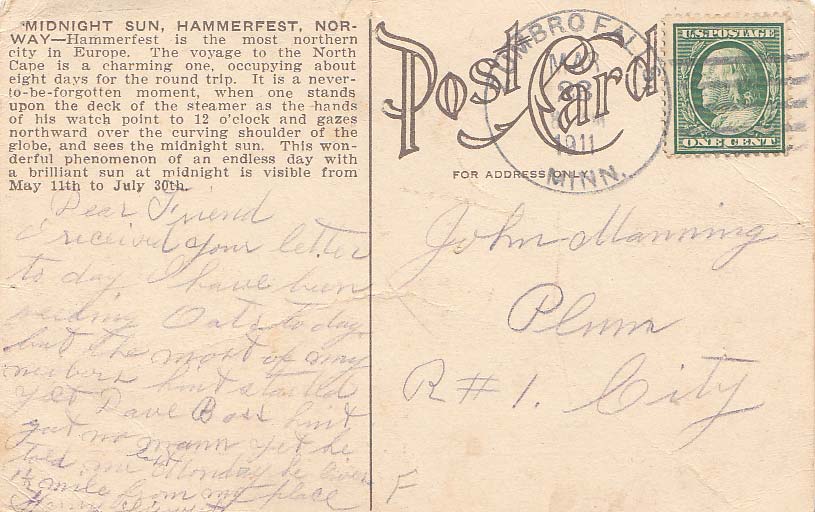 MIDNIGHT SUN, HAMMERFEST, NOR-
WAY—Hammerfest is the most northern
city in Europe. The voyage to the North
Cape is a charming one, occupying about
eight days for the round trip. It is a never-
to-be-forgotten moment, when one stands
upon the deck of the steamer as the hands
of his watch point to 12 o'clock and gazes
northward over the curving shoulder of the
globe, and sees the midnight sun. This won-
derful phenomenon of an endless day with
a brilliant sun at midnight is visible from
May 11th to July 30th.
Dear Friend
I received your letter
to day I have been
Oats to day
but the most of my
neibors hint started
yet Dave Boss hint
got no mann yet he
told me last Monday he lives
1/2 mile from my place
Post Card
FOR ADDRESS ONLY
ZUMBRO FALLS
MAR
28
1911
MINN.
U.S. POSTAGE
ONE CENT
John Manning
Plum
R # 1. City
F